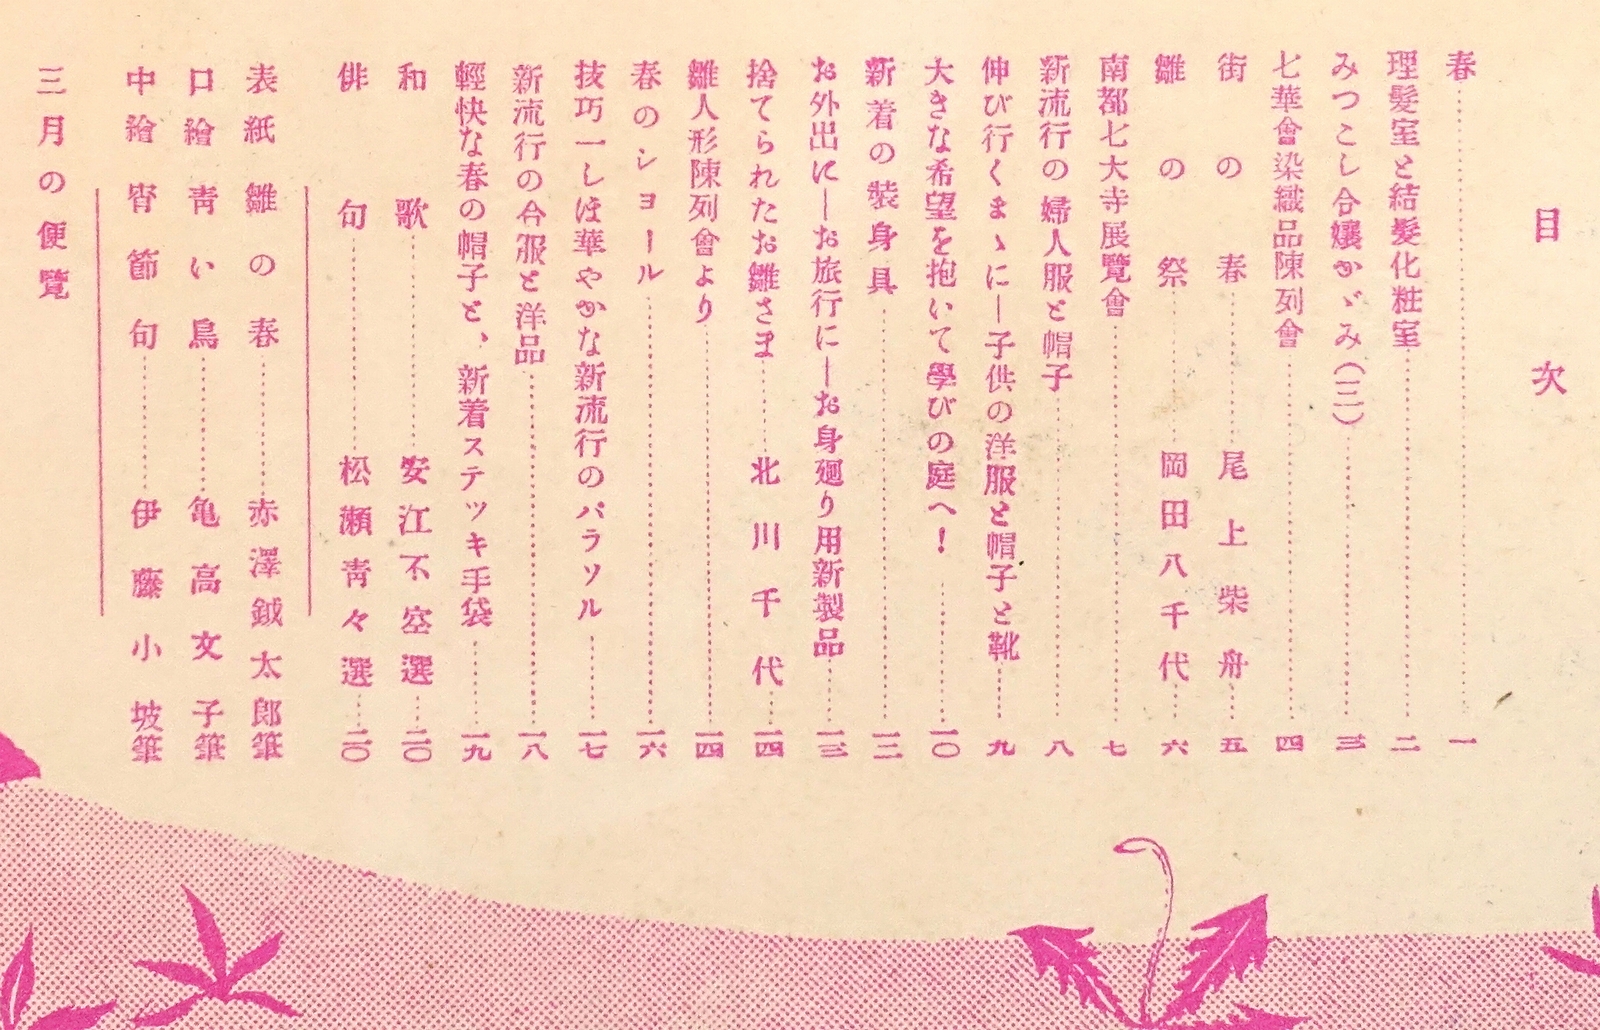 目次
春 一
理髮室と結髮化粧室 二
みつこし合孃かゞみ(三) 三
七華會染織品陳列會 四
街の春 尾上柴舟 五
雛の祭 岡田八千代 六
南都七大寺展覽會 七
新流行の婦人服と帽子 八
伸び行くまゝに―子供の洋服と帽子と靴 九
大きな希望を抱いて學びの庭へ! 一〇
新着の裝身具 一二
お外出に―お旅行に―お身廻り用新製品 一三
捨てられたお雛さま 北川千代 一四
雛人形陳列會より 一四
春のショール 一六
技巧一しほ華やかな新流行のパラソル 一七
新流行の合服と洋品 一八
輕快な春の帽子と、新着ステツキ手袋 一九
和歌 安江不空選 二〇
俳句 松瀬靑々選 二〇
表紙 雛の春 赤澤鉞太郎筆
口繪 靑い鳥 亀高文子筆
中繪 宵節句 伊藤小坡筆
三月の便覽